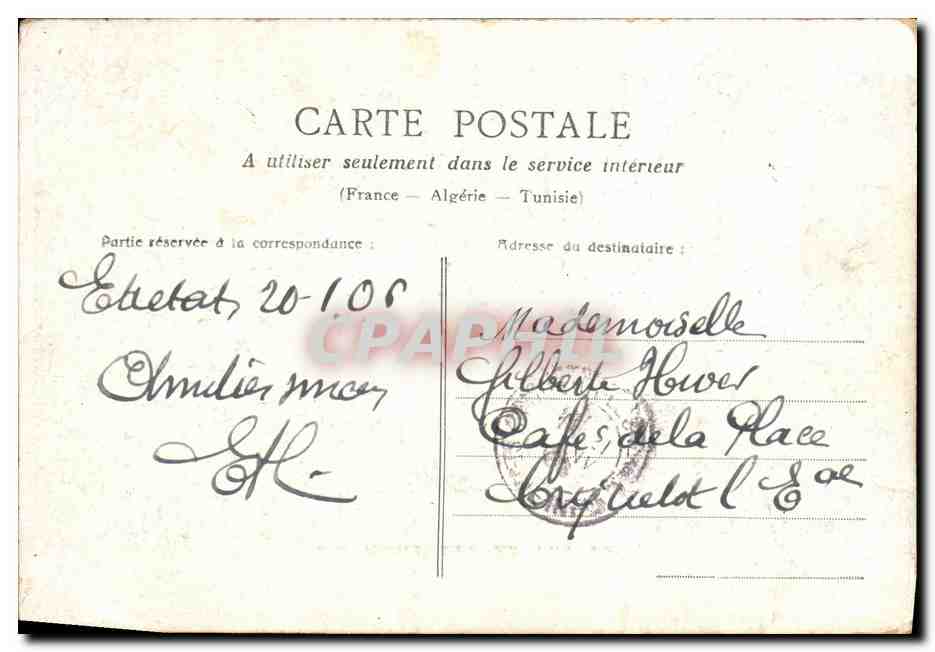 CARTE POSTALE
A utiliser seulement dans le service intérieur
(France — Algérie — Tunisie)
Partie réservée à la correspondance :
Adresse du destinataire :
Etretat, 20-1.06
EH.
Mademoiselle
Gilberte
Cafés, de la Place
Criquetot l'Eal
CPAPHIL